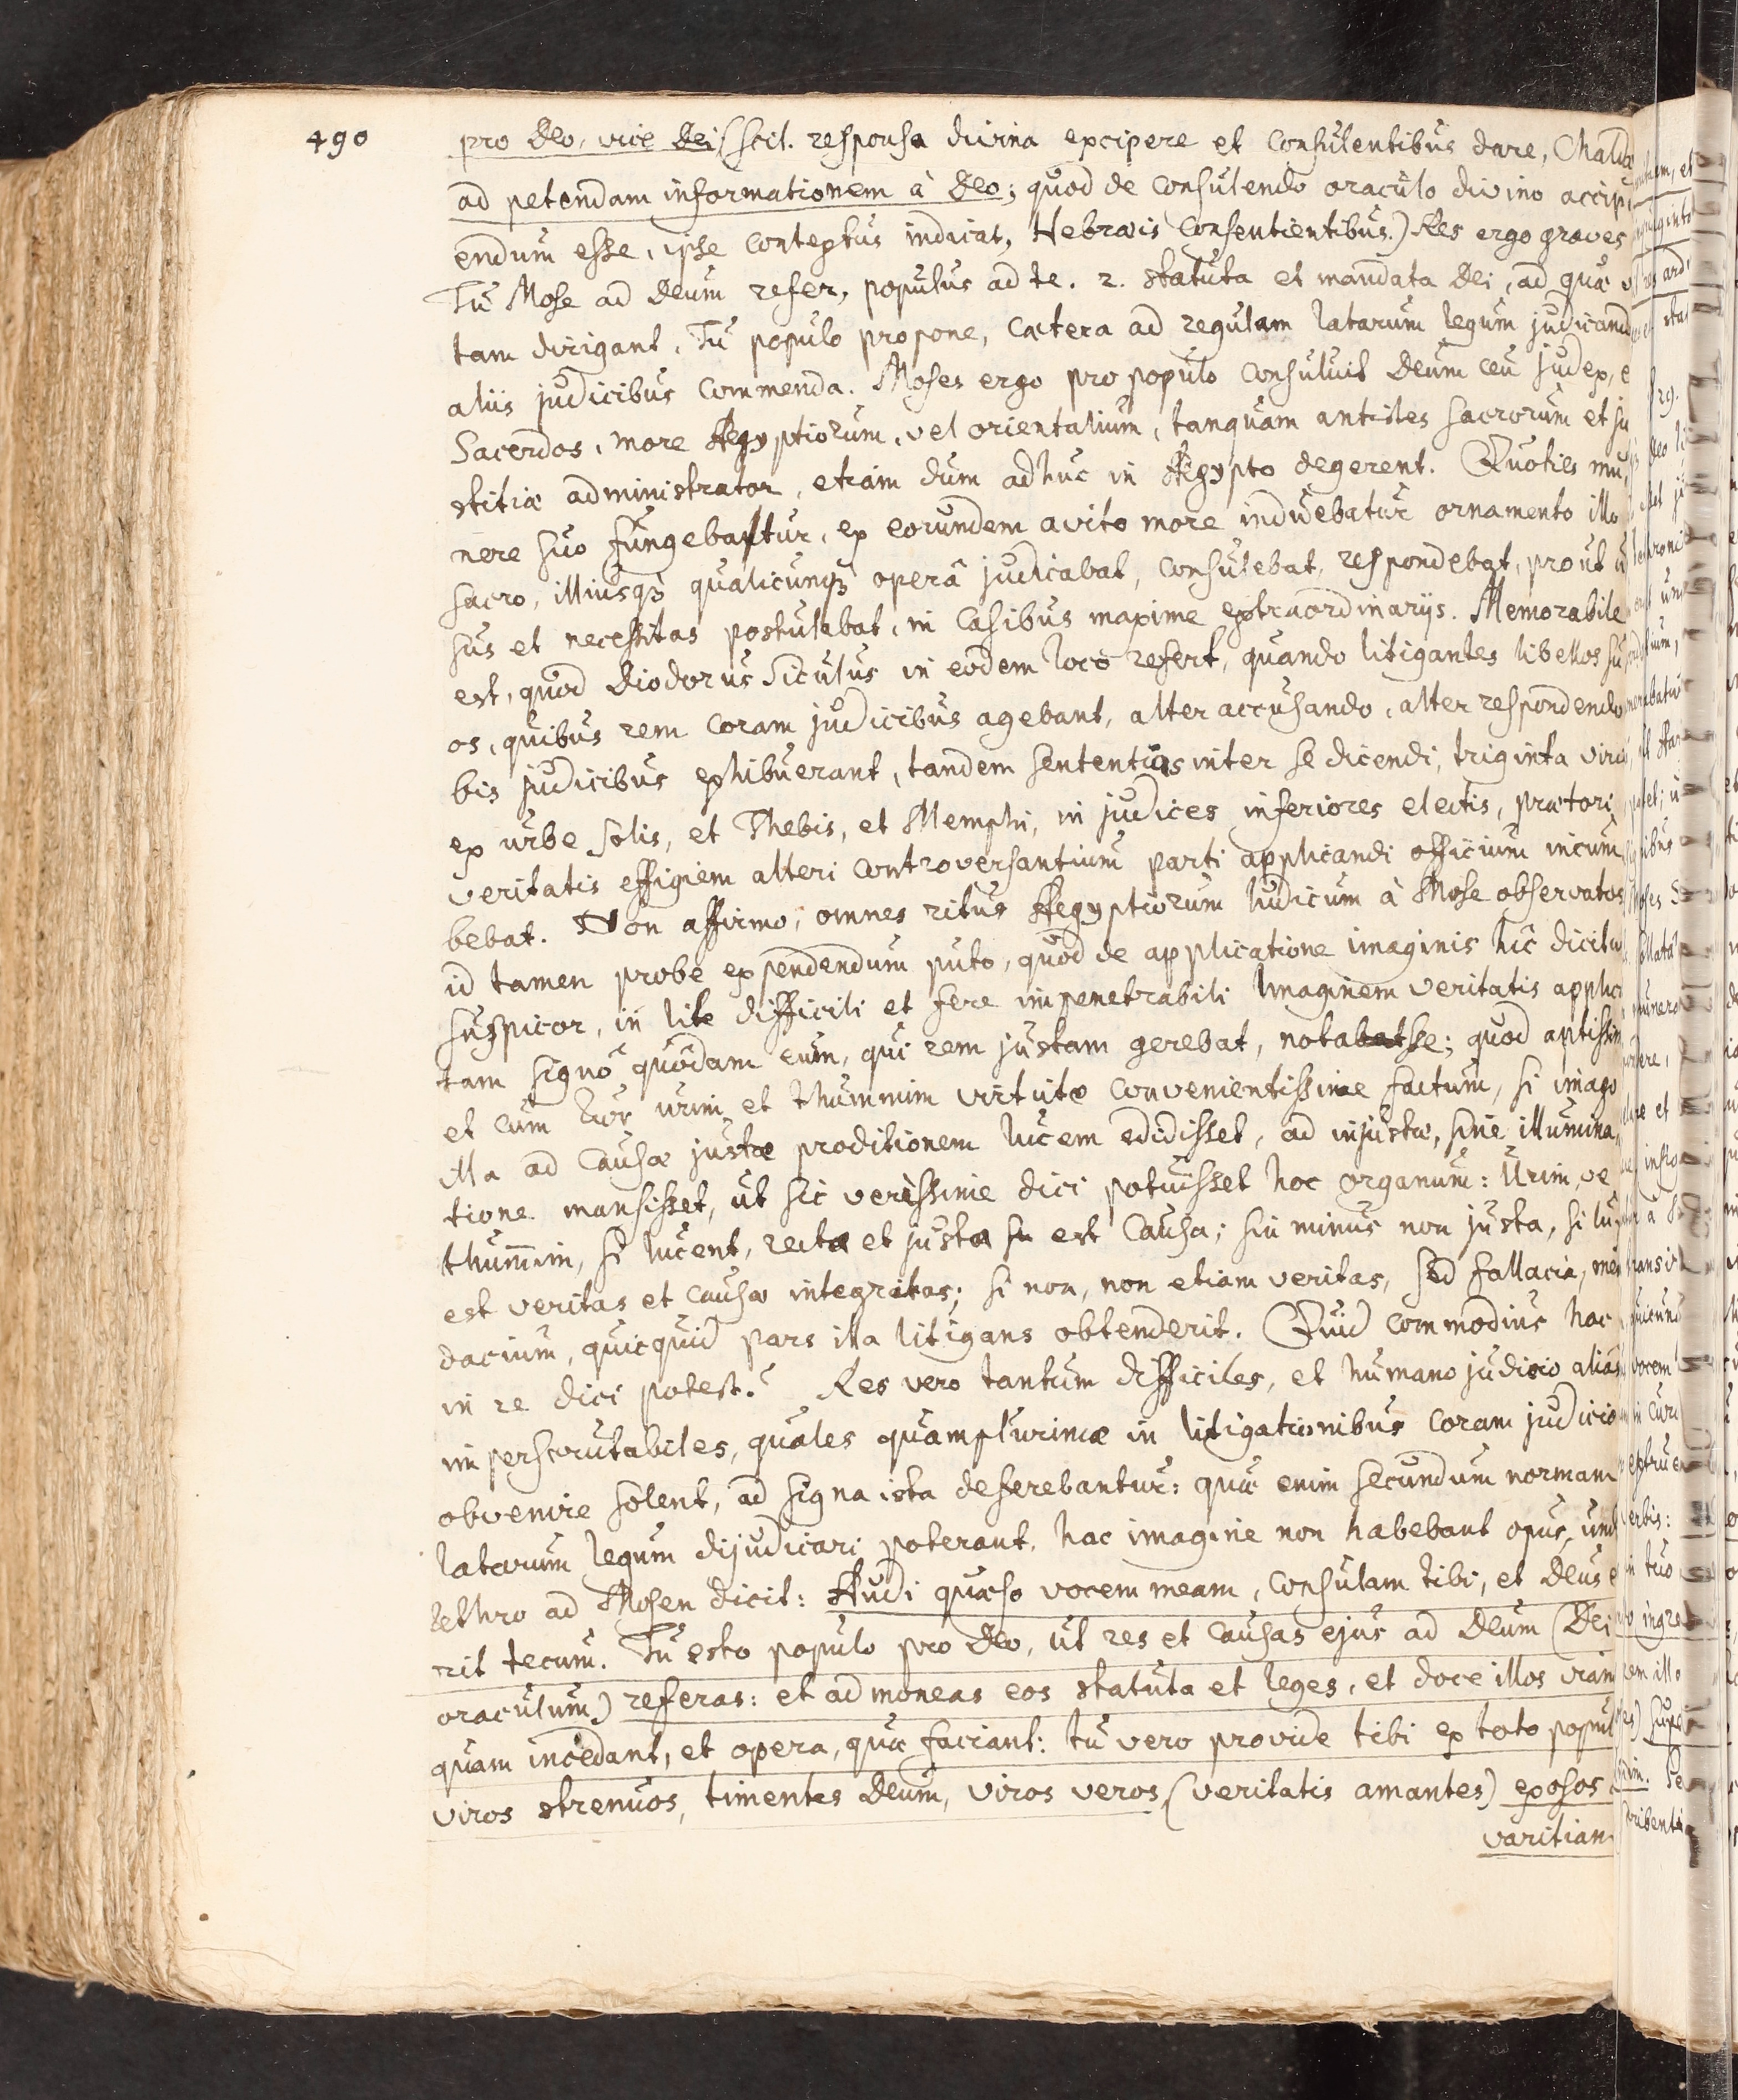 490
pro Deo, vice Dei (scil. responsa divina excipere et consulentibus dare, Chaldæ
ad petendam informationem à Deo; quod de consulendo oraculo divino accipi
endum esse, ipse contextus indicat, Hebræis consentientibus.) Res ergo graves
Tu Mose ad Deum refer, populus ad te. 2. statuta et mandata Dei, ad quæ v
tam dirigant, Tu populo propone, cætera ad regulam latarum legum judicand
aliis judicibus commenda. Moses ergo pro populo consuluit Deum ceu judex, e
Sacerdos, more Aegyptiorum, vel orientalium, tanquam antistes sacrorum et ju
stitiæ administrator, etiam dum adhuc in Aegypto degerent. Quoties mu
nere suo fungebatur, ex eorundem avito more induebatur ornamento illo
sacro, illiusqꝫ qualicunqꝫ operâ judicabat, consulebat, respondebat, prout u
sus et necessitas postulabat, in casibus maxime extraordinariis. Memorabile
est, quod Diodorus Siculus in eodem loco refert, quando litigantes libellos su
os, quibus rem coram judicibus agebant, alter accusando, alter respondendo
bis judicibus exhibuerant, tandem sententias inter se dicendi, triginta viris
ex urbe Solis, et Thebis, et Memphi, in judices inferiores electis, prætori
veritatis effigiem alteri controversantium parti applicandi officium incum
bebat. Non affirmo, omnes ritus Aegyptiorum Judicum à Mose observatos
id tamen probe expendendum puto, quod de applicatione imaginis hîc dicitur
Suspicor, in lite difficili et fere impenetrabili Imaginem veritatis applica
tam signo quodam eum, qui rem justam gerebat, notasse; quod aptissim
et cum urim et thummim virtute convenientissime factum, si imago
illa ad causæ justæ proditionem lucem edidisset, ad injustæ, sine illumina
tione mansisset, ut sic verissime dici potuisset hoc organum: Urim, ve
thum̄im, si lucent, recta et justa est causa; sin minus non justa, si lux
est veritas et causæ integritas; si non, non etiam veritas, sed fallacia, men
dacium, quicquid pars illa litigans obtenderit. Quid commodius hac
in re dici potest? Res vero tantum difficiles, et humano judicio alias
imperscrutabiles, quales quamplurimæ in litigationibus coram judicio
obvenire solent, ad signa ista deferebantur: quæ enim secundum normam
latarum legum dijudicari poterant, hac imagine non habebant opus, und
Iethro ad Mosen dicit: Audi quæso vocem meam, consulam tibi, et Deus e
rit tecum. Tu esto populo pro Deo, ut res et causas ejus ad Deum (Dei
oraculum) referas: et admoneas eos statuta et leges, et doce illos viam
quam incedant, et opera, quæ faciant: tu vero provide tibi ex toto popul
viros strenuos, timentes Deum, viros veros, (veritatis amantes) exosos a
varitiam